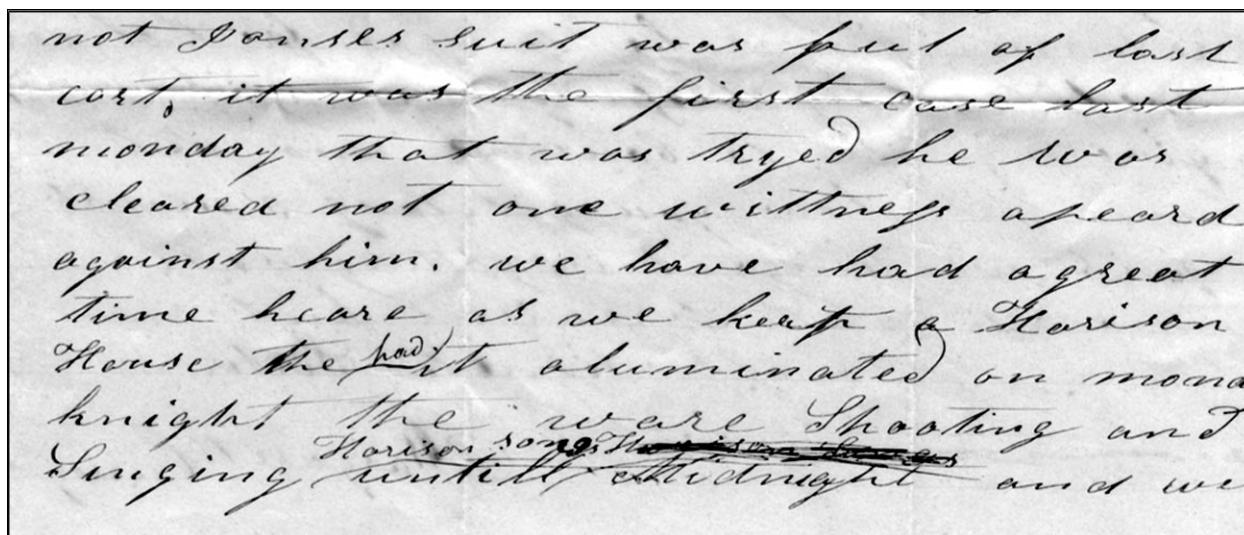 not Jonses suit was put of last
cort, it was the first case last
monday that was tryed he was
cleared not one wittness apeard
against him. we have had a great
time heare as we keap a Harison
House the had it aluminated on mond
knight the ware Shooting and
Harison songs Harison songs
Singing untill Midnight and we